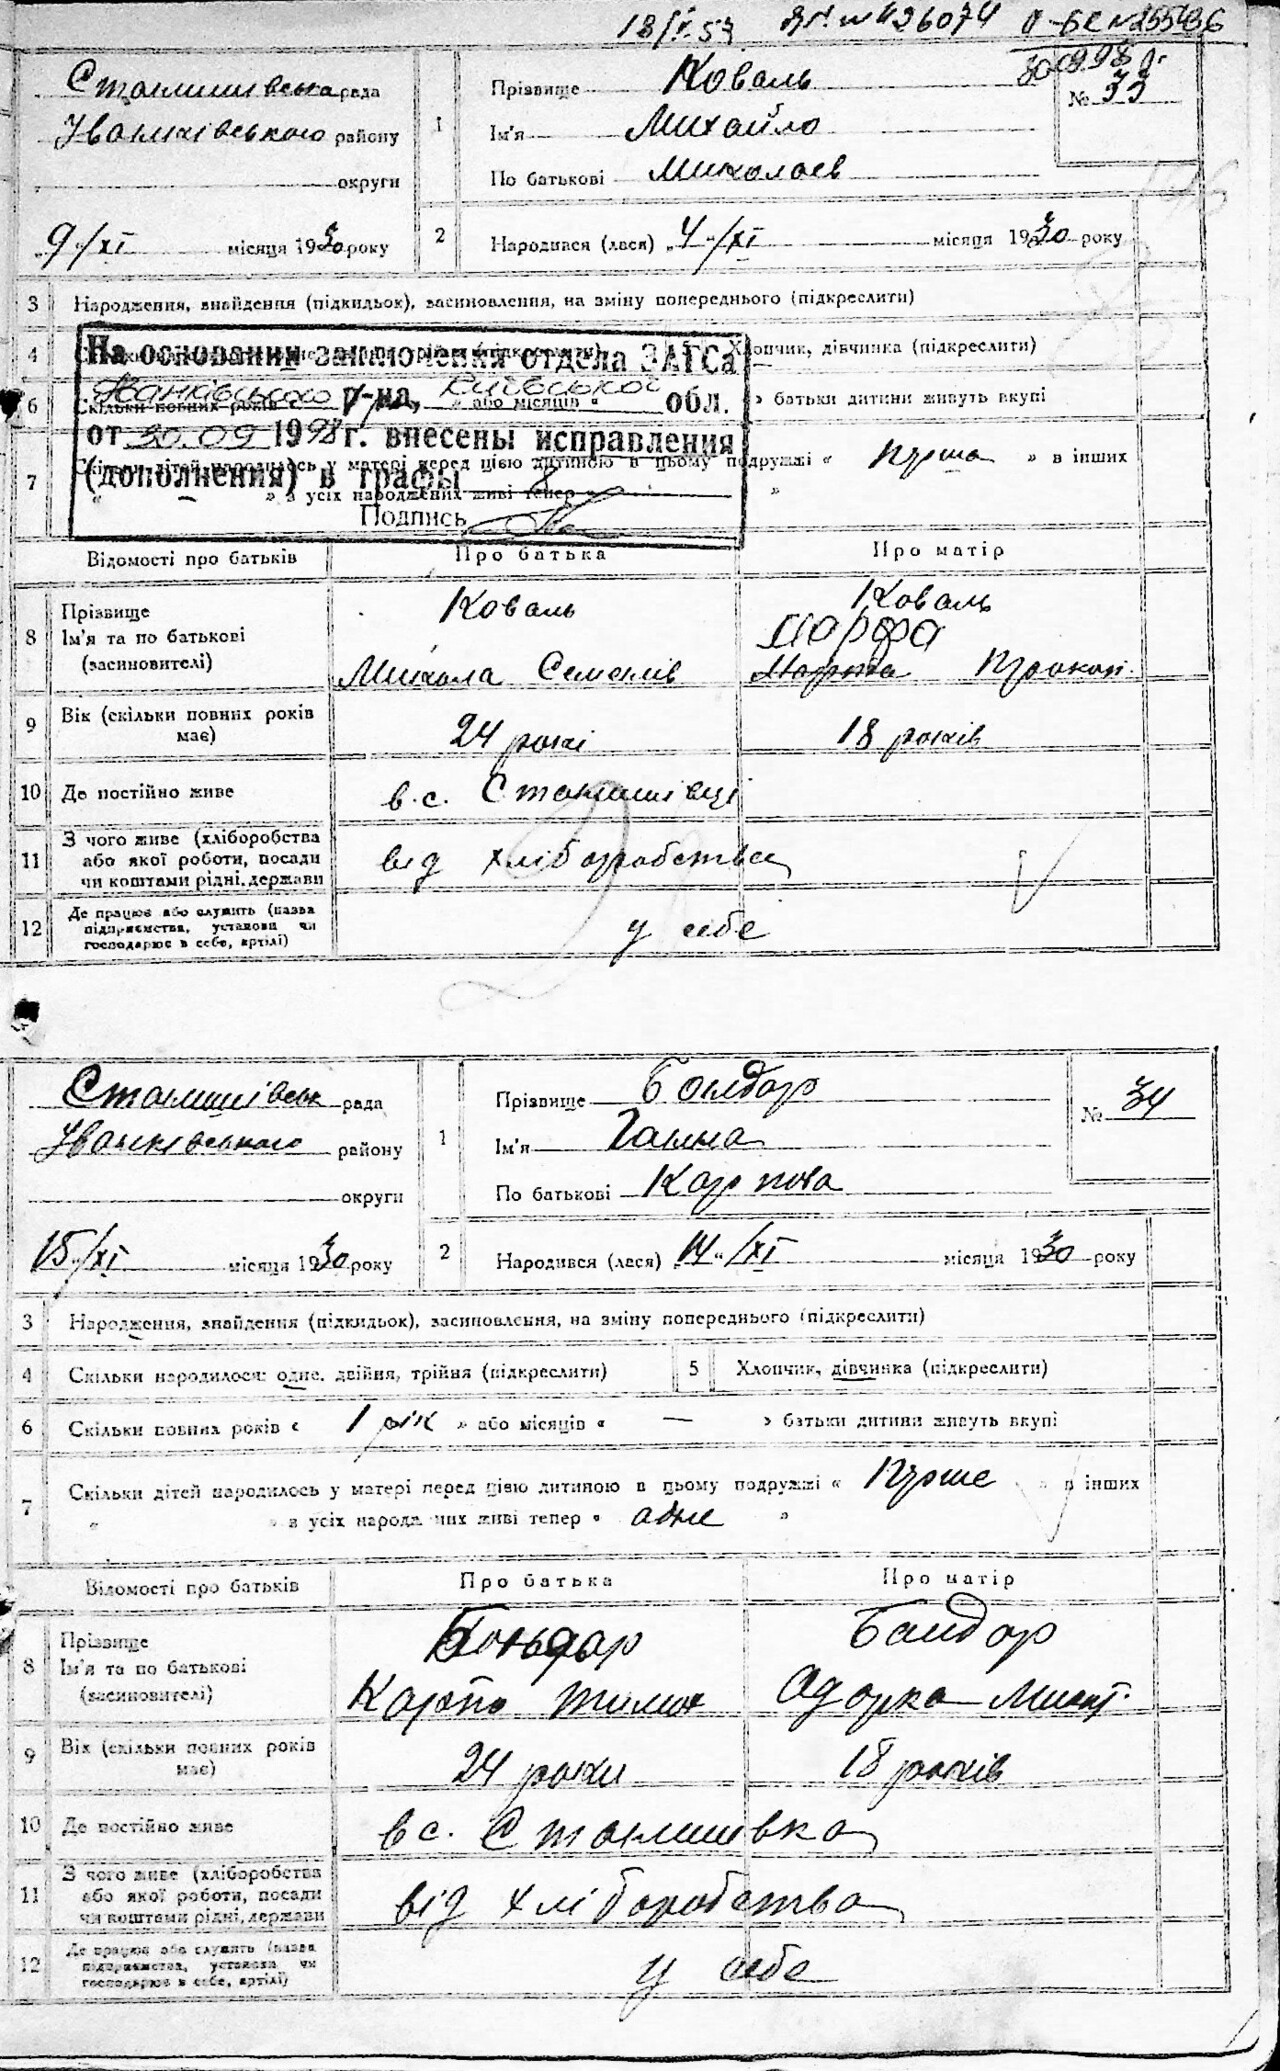 18/І.53 № 426074
300998 р.
Станишівська рада
Іванківського району
округи
9/XI місяця 1930 року
1
Прізвище Коваль
Ім'я Михайло
По батькові Миколаєв
№ 33
2
Народився (лася) „4"/XI місяця 1930 року
3 Народження, знайдення (підкидьок), засиновлення, на зміну попереднього (підкреслити)
4 Хлопчик, дівчинка (підкреслити)
На основании заключения отдела ЗАГСа
Іванківського р-на, Київської обл.
от 30.09 1998 г. внесены исправления
(дополнения) в графы 8
Подпись
6 Скільки повних років « » або місяців « » батьки дитини живуть вкупі
7 Скільки дітей народилось у матері перед цією дитиною в цьому подружжі « Перша » в інших
« » в усіх народжених живі тепер « »
Відомості про батьків Про батька Про матір
8 Прізвище Коваль Коваль
Ім'я та по батькові Марфа
(засиновителі) Микола Семенів Марта Прокоп.
9 Вік (скільки повних років має) 24 роки 18 років
10 Де постійно живе в.с. Станишівці
11 З чого живе (хліборобства
або якої роботи, посади від хліборобства
чи коштами рідні, держави
12 Де працює або служить (назва
підприємства, установи чи у себе
господарює в себе, артілі)
Станишівськ рада
Іванківського району
округи
15/XI місяця 1930 року
1
Прізвище Бондар
Ім'я Ганна
По батькові Карпова
№ 34
2
Народився (лася) „14"/XI місяця 1930 року
3 Народження, знайдення (підкидьок), засиновлення, на зміну попереднього (підкреслити)
4 Скільки народилося: одне, двійня, трійня (підкреслити) 5 Хлопчик, дівчинка (підкреслити)
6 Скільки повних років « 1 рік » або місяців « — » батьки дитини живуть вкупі
7 Скільки дітей народилось у матері перед цією дитиною в цьому подружжі « Перше » в інших
« » в усіх народжених живі тепер « одне »
Відомості про батьків Про батька Про матір
8 Прізвище Бондар Бондар
Ім'я та по батькові
(засиновителі) Карпо Тимох Одарка
9 Вік (скільки повних років має) 24 роки 18 років
10 Де постійно живе в с. Станишівка
11 З чого живе (хліборобства
або якої роботи, посади від хліборобства
чи коштами рідні, держави
12 Де працює або служить (назва
підприємства, установи чи у себе
господарює в себе, артілі)